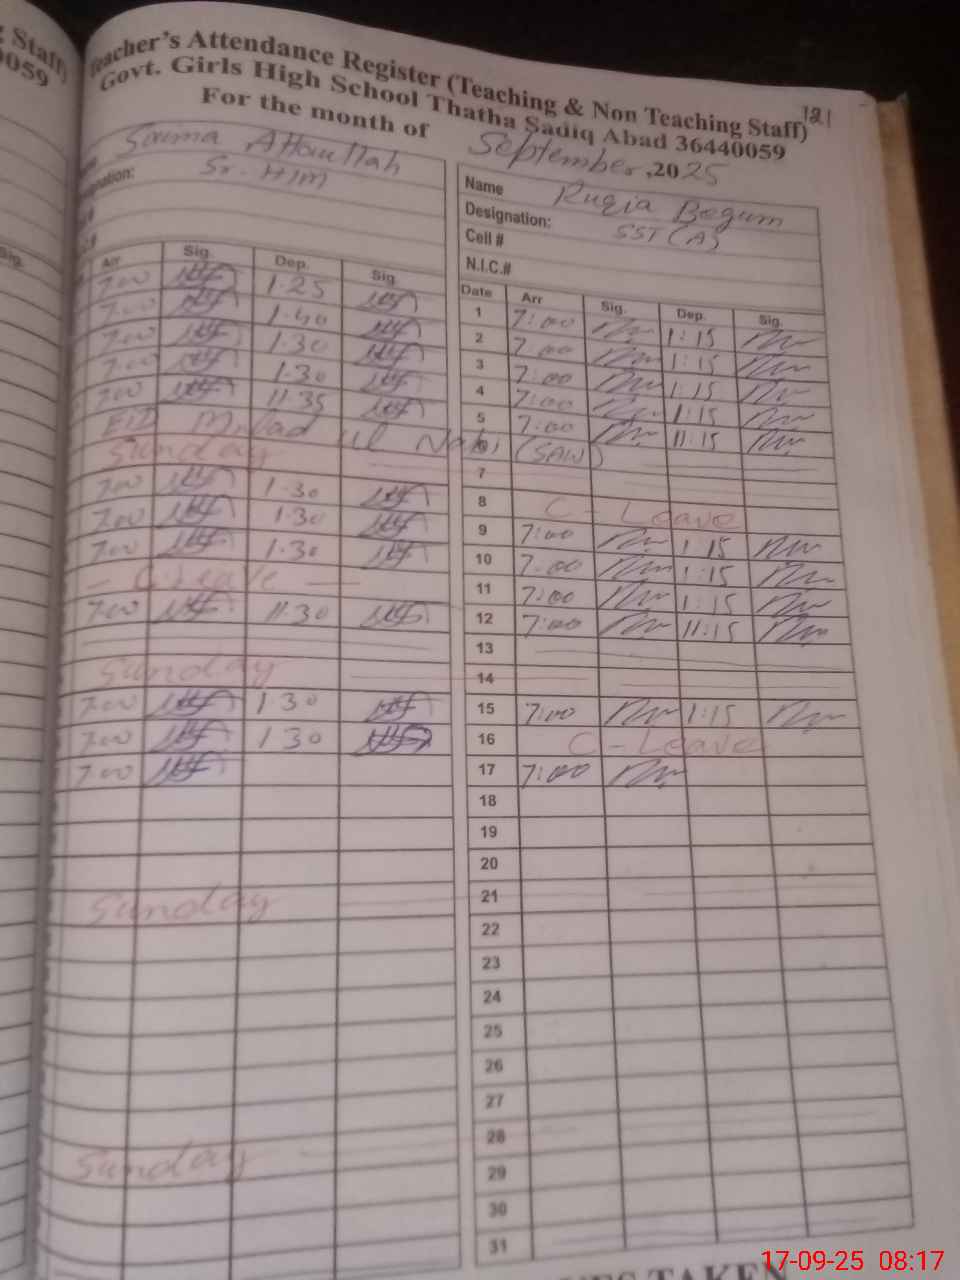 Staff)
0059
Sig.
Teacher's Attendance Register (Teaching & Non Teaching Staff) 121
Govt. Girls High School Thatha Sadiq Abad 36440059
For the month of September, 2025
Saima Attaullah
Sr. H/M
Arr Sig. Dep. Sig
7.00 1.25
7.00 1.40
7.00 1.30
7.00 1.30
7.00 11.35
EID Milad ul Nabi (SAW)
Sunday
7.00 1.30
7.00 1.30
7.00 1.30
C. Leave
7.00 11.30
Sunday
7.00 1.30
7.00 1.30
7.00
Sunday
Sunday
Name Ruqia Begum
Designation: SST (A)
Cell #
N.I.C.#
Date Arr Sig. Dep. Sig.
1 7:00 1:15
2 7:00 1:15
3 7:00 1:15
4 7:00 1:15
5 7:00 11:15
6
7
8 C - Leave
9 7:00 1:15
10 7:00 1:15
11 7:00 1:15
12 7:00 11:15
13
14
15 7:00 1:15
16 C - Leave
17 7:00
18
19
20
21
22
23
24
25
26
27
28
29
30
31
TAKEN
17-09-25 08:17